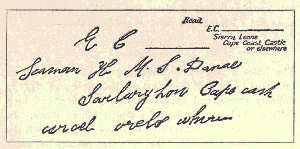 Read
E.C. 
Sierra Leone
Cape Coast Castle
or elsewhere
E C
Seaman H. M. S. Danae
Sarlaryhon Cape cash
carcel orelswhere